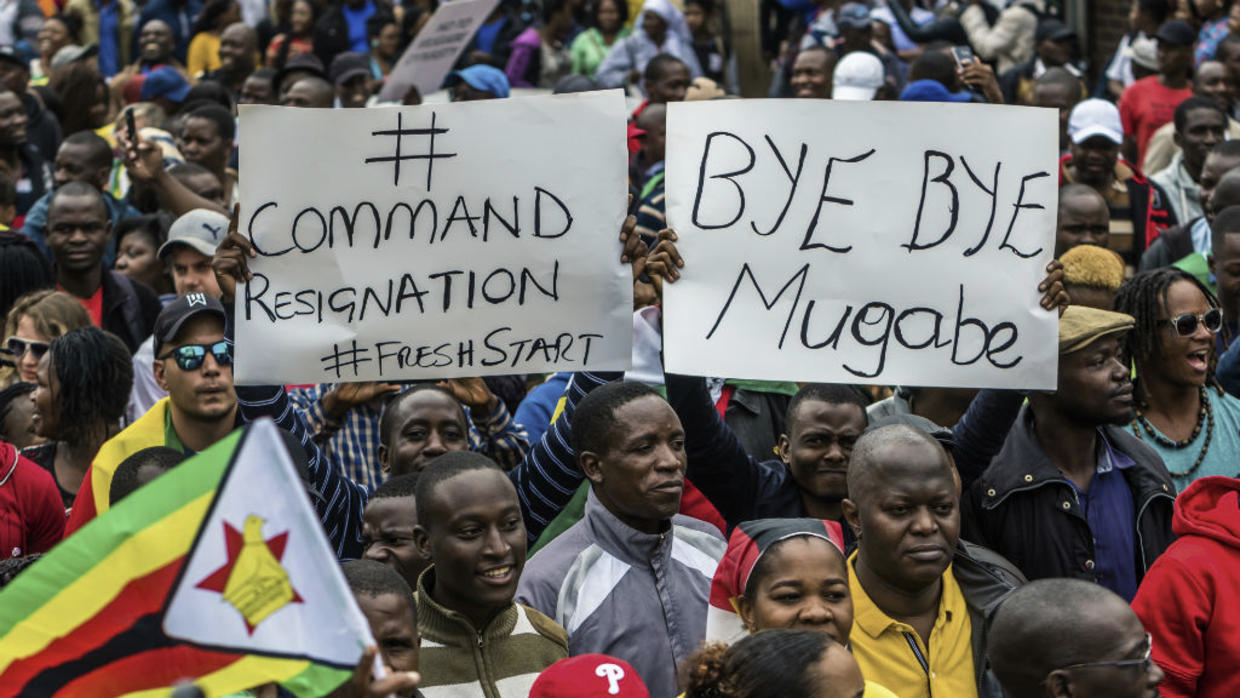 #
COMMAND
RESIGNATION
#FRESHSTART
BYE BYE
Mugabe
P